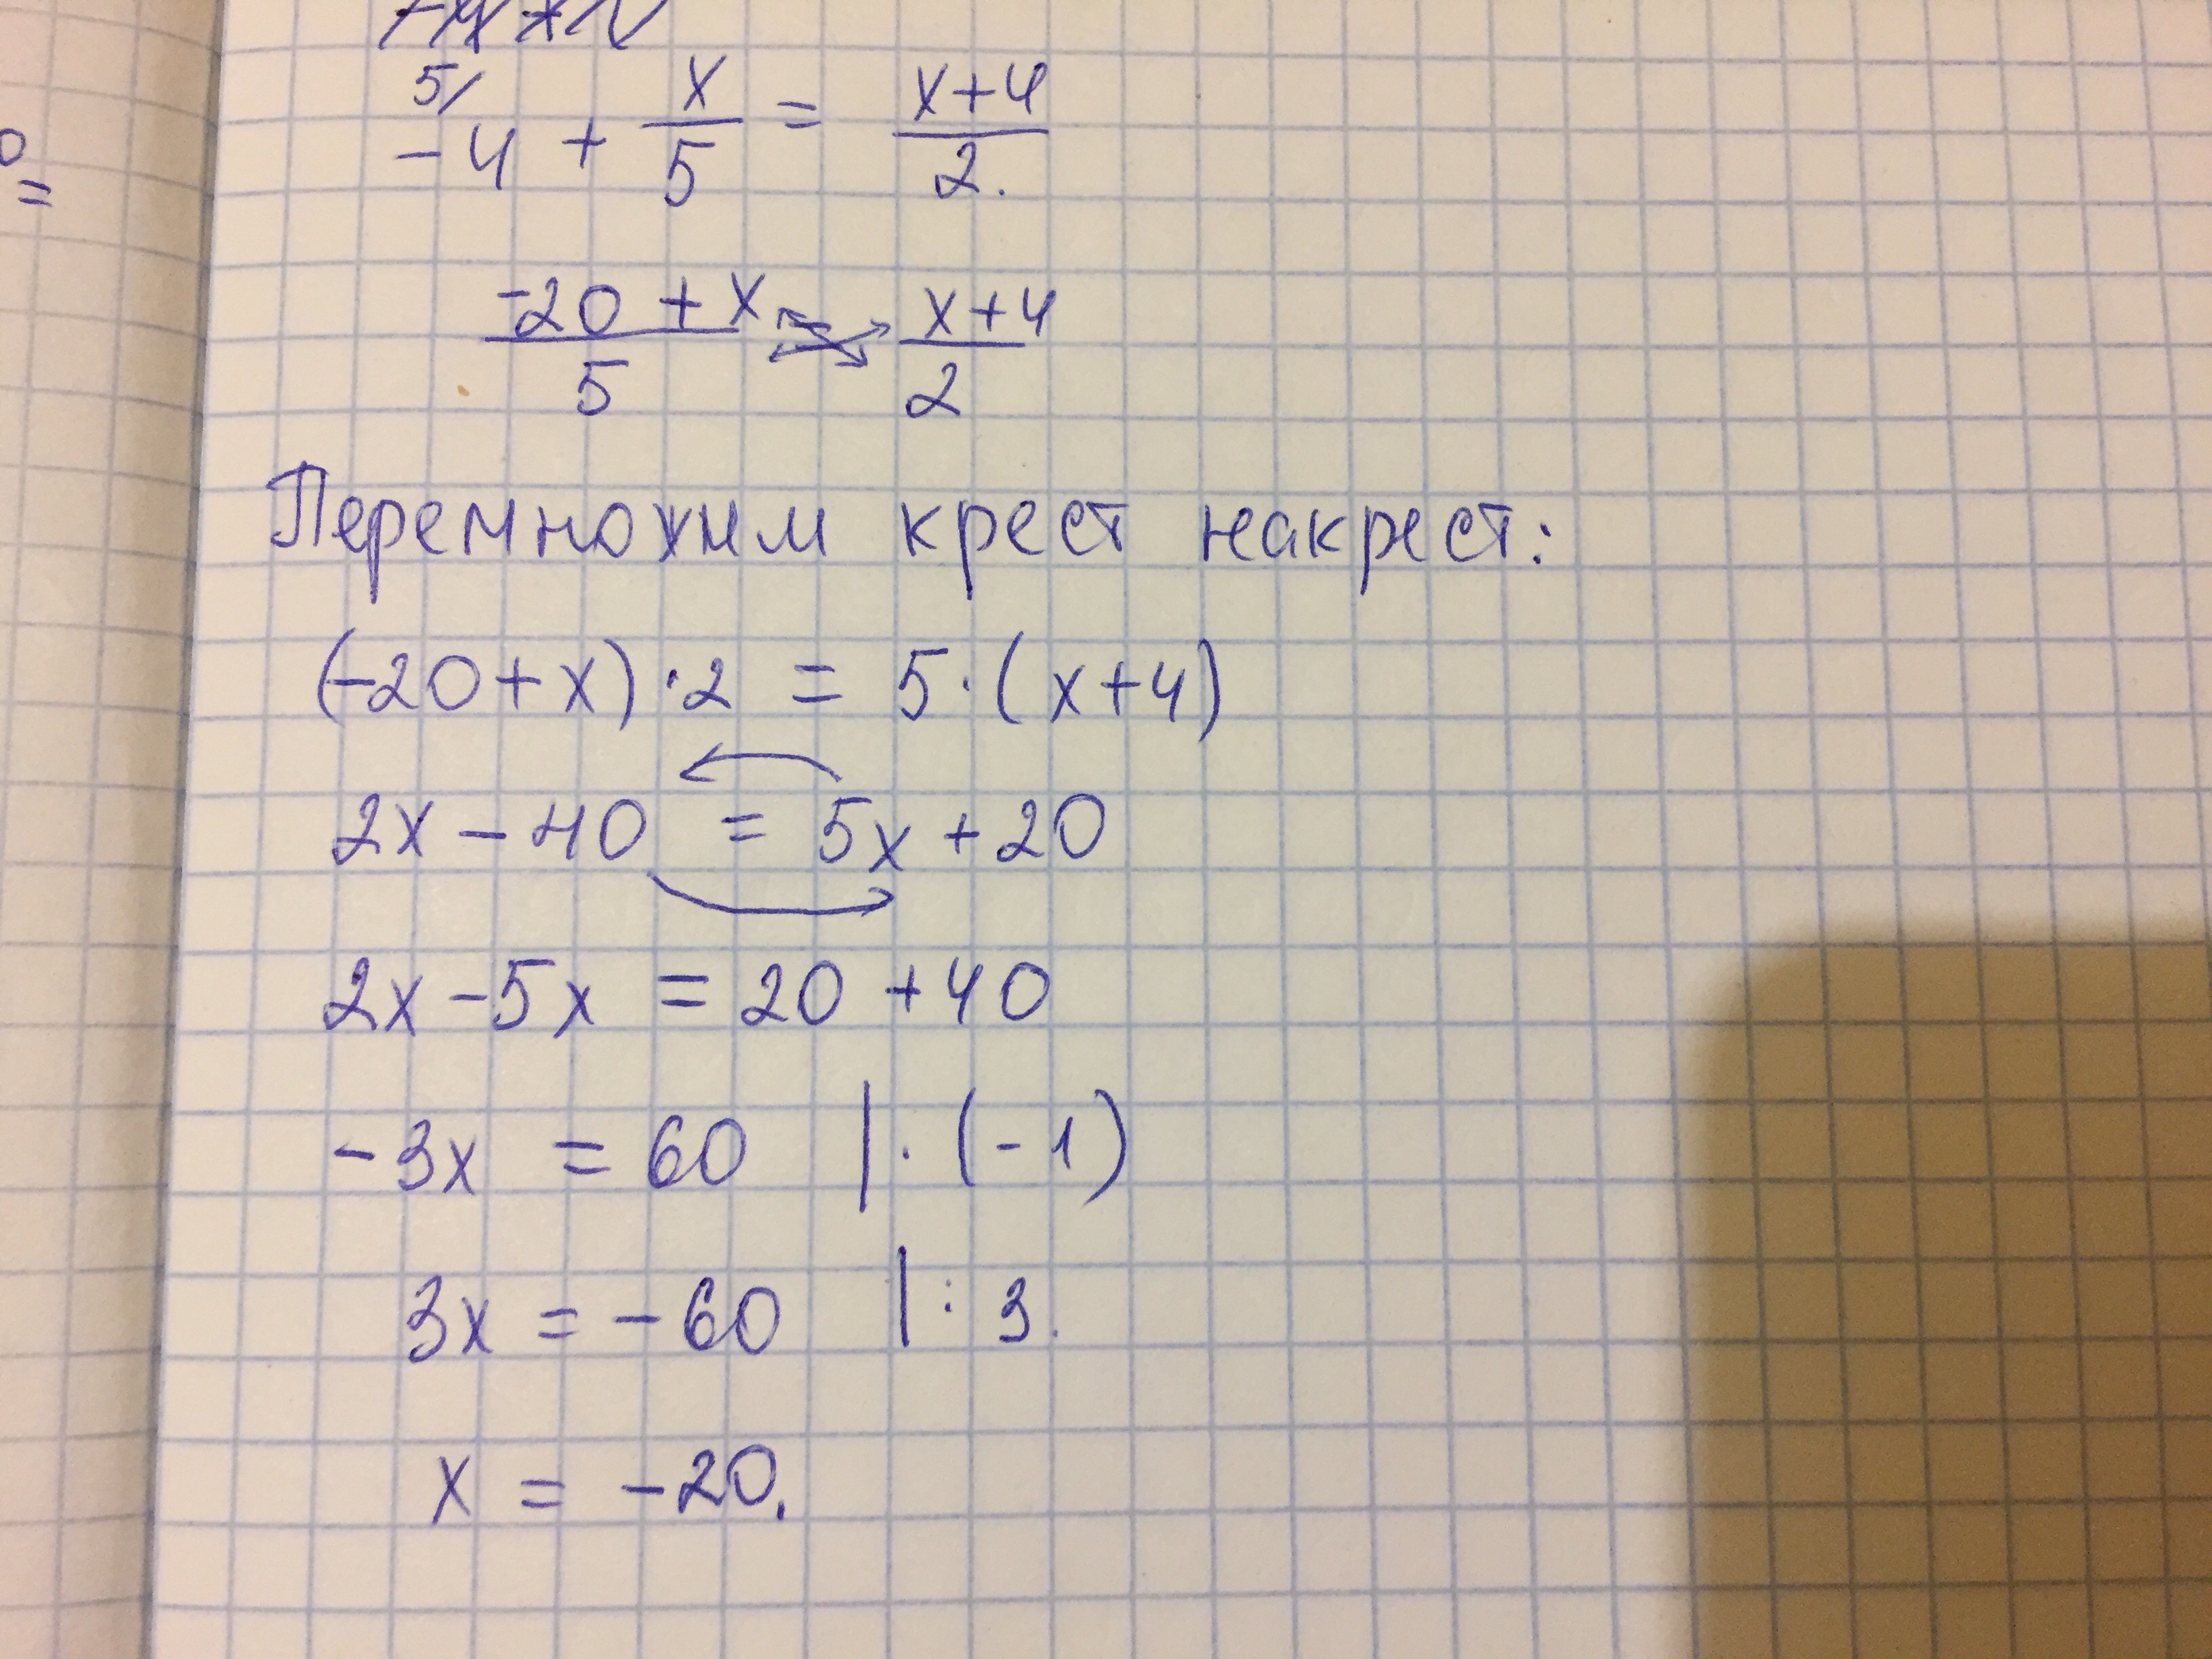 5/
-4 + x/5 = x+4/2.
-20 + x/5 x+4/2
Перемножим крест накрест:
(-20+x)·2 = 5·(x+4)
2x - 40 = 5x + 20
2x - 5x = 20 + 40
-3x = 60 |·(-1)
3x = -60 |: 3.
x = -20.